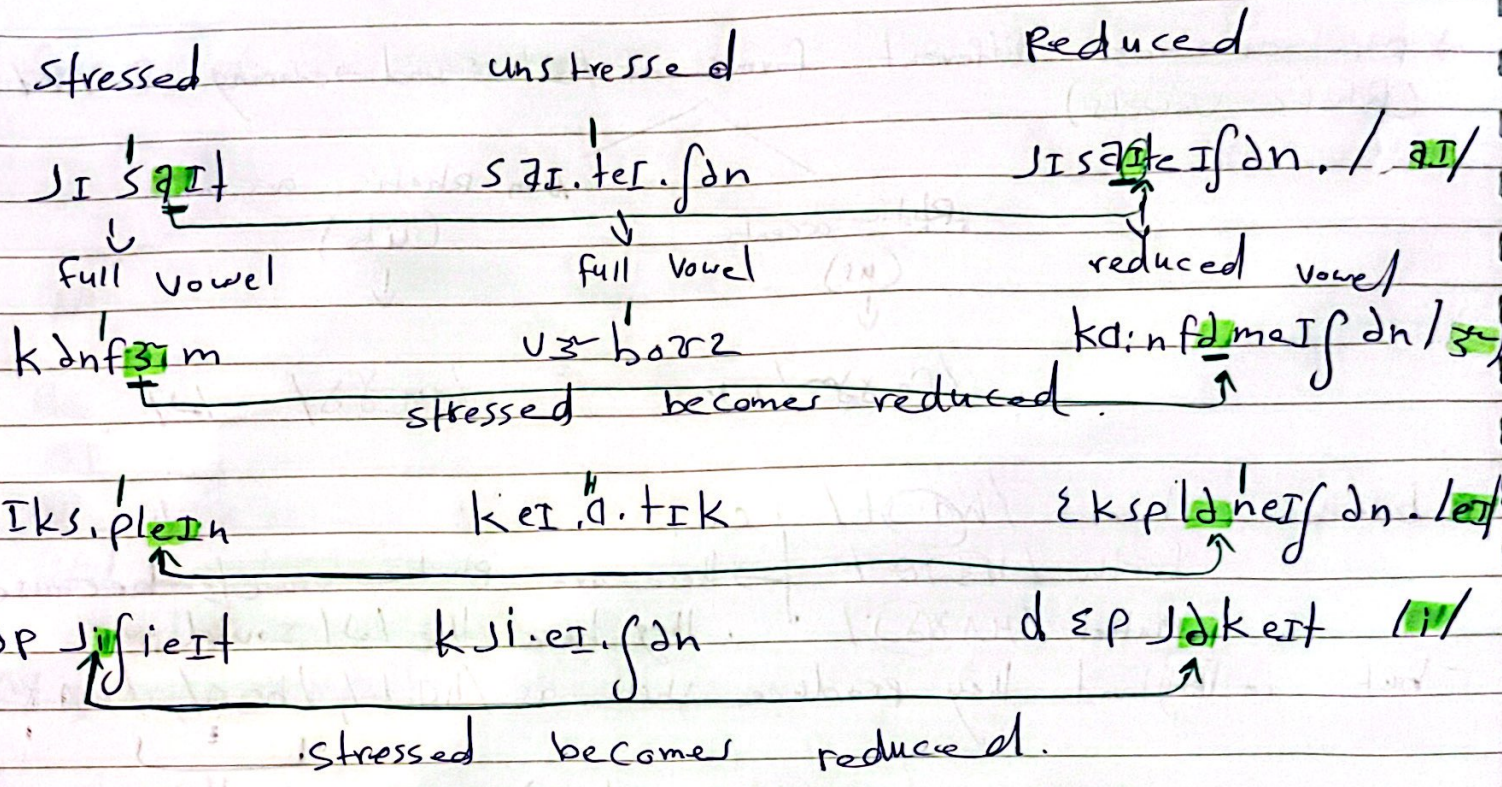 Stressed unstressed Reduced
ɹɪ ˈsaɪt saɪ.ˈteɪ.ʃən ɹɪsaɪteɪʃən. / aɪ/
full vowel full vowel reduced vowel
kənˈfɝm vɝˈboʊz kɑːnfəmeɪʃən /ɝ
stressed becomes reduced.
ɪks.ˈpleɪn keɪ.ˈɑ.tɪk ɛkspləˈneɪʃən. /eɪ/
əp ɹiʃieɪt kɹi.eɪ.ʃən dɛpɹəkeɪt /i/
.stressed becomes reduced.